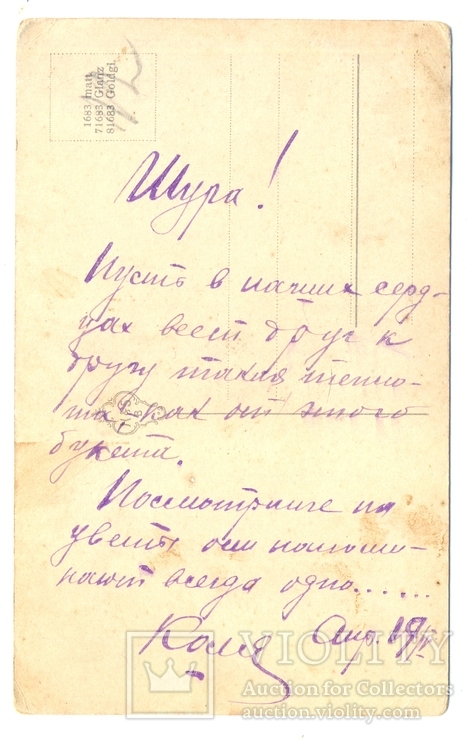 1683 matt
71683 Glanz
81683 Goldgl.
Шура!
Пусть в наших серд-
цах веет друг к
другу такая тепло-
та, как от этого
букета.
Посмотрите на
цветы они напоми-
нают всегда одно......
Коля Апр. 19
VIOLITY
Auction for Collectors
auction.violity.com